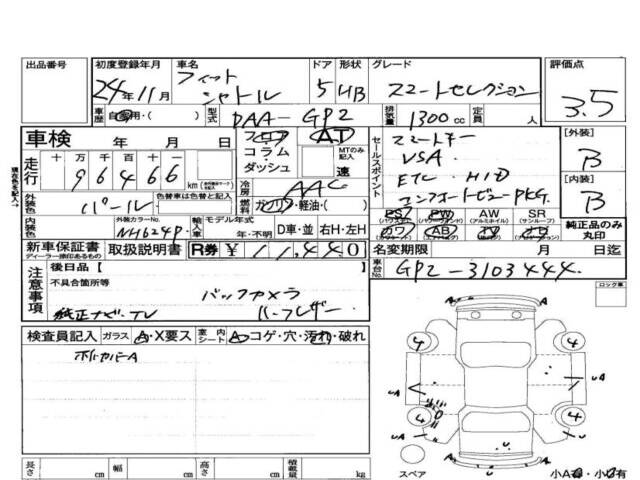 出品番号 初度登録年月 車名 ドア 形状 グレード 評価点
24年11月 フィット シャトル 5 HB スマートセレクション 3.5
車歴 自家用・( ) 型式 DAA-GP2 排気量 1300cc 定員 人
車検 年 月 日
フロア AT
コラム・ダッシュ MTのみ記入 速
セールスポイント
スマートキー
VSA
ETC HID
コンフォートビューPKG.
[外装] B
[内装] B
現在名を記入→
走行 十万千百十一
96466 km
冷房 AAC
外装色 パール 色替車は色替と記入
燃料 ガソリン・軽油・( )
PS (パワステ) PW (パワーウインド) AW (アルミホイル) SR (サンルーフ)
純正品のみ丸印
内装色 外装カラーNo. NH624P 輸入車 モデル年式 年・不明 D車・並 右H・左H
新車保証書 ディーラー捺印あるもの 取扱説明書 R券 ¥11,440
名変期限 月 日迄
車台No. GP2-3103444
注意事項
後日品【 】
不具合箇所等
バックカメラ
純正ナビ・TV ハーフレザー
ロック車
検査員記入 ガラス A・X要ス 室内シート A コゲ・穴・汚れ・破れ
ホイルカバーA
4 4
A
UA
UA
4 4
U
U
長さ cm 幅 cm 高さ cm 積載量 kg
スペア 小A有・小U有